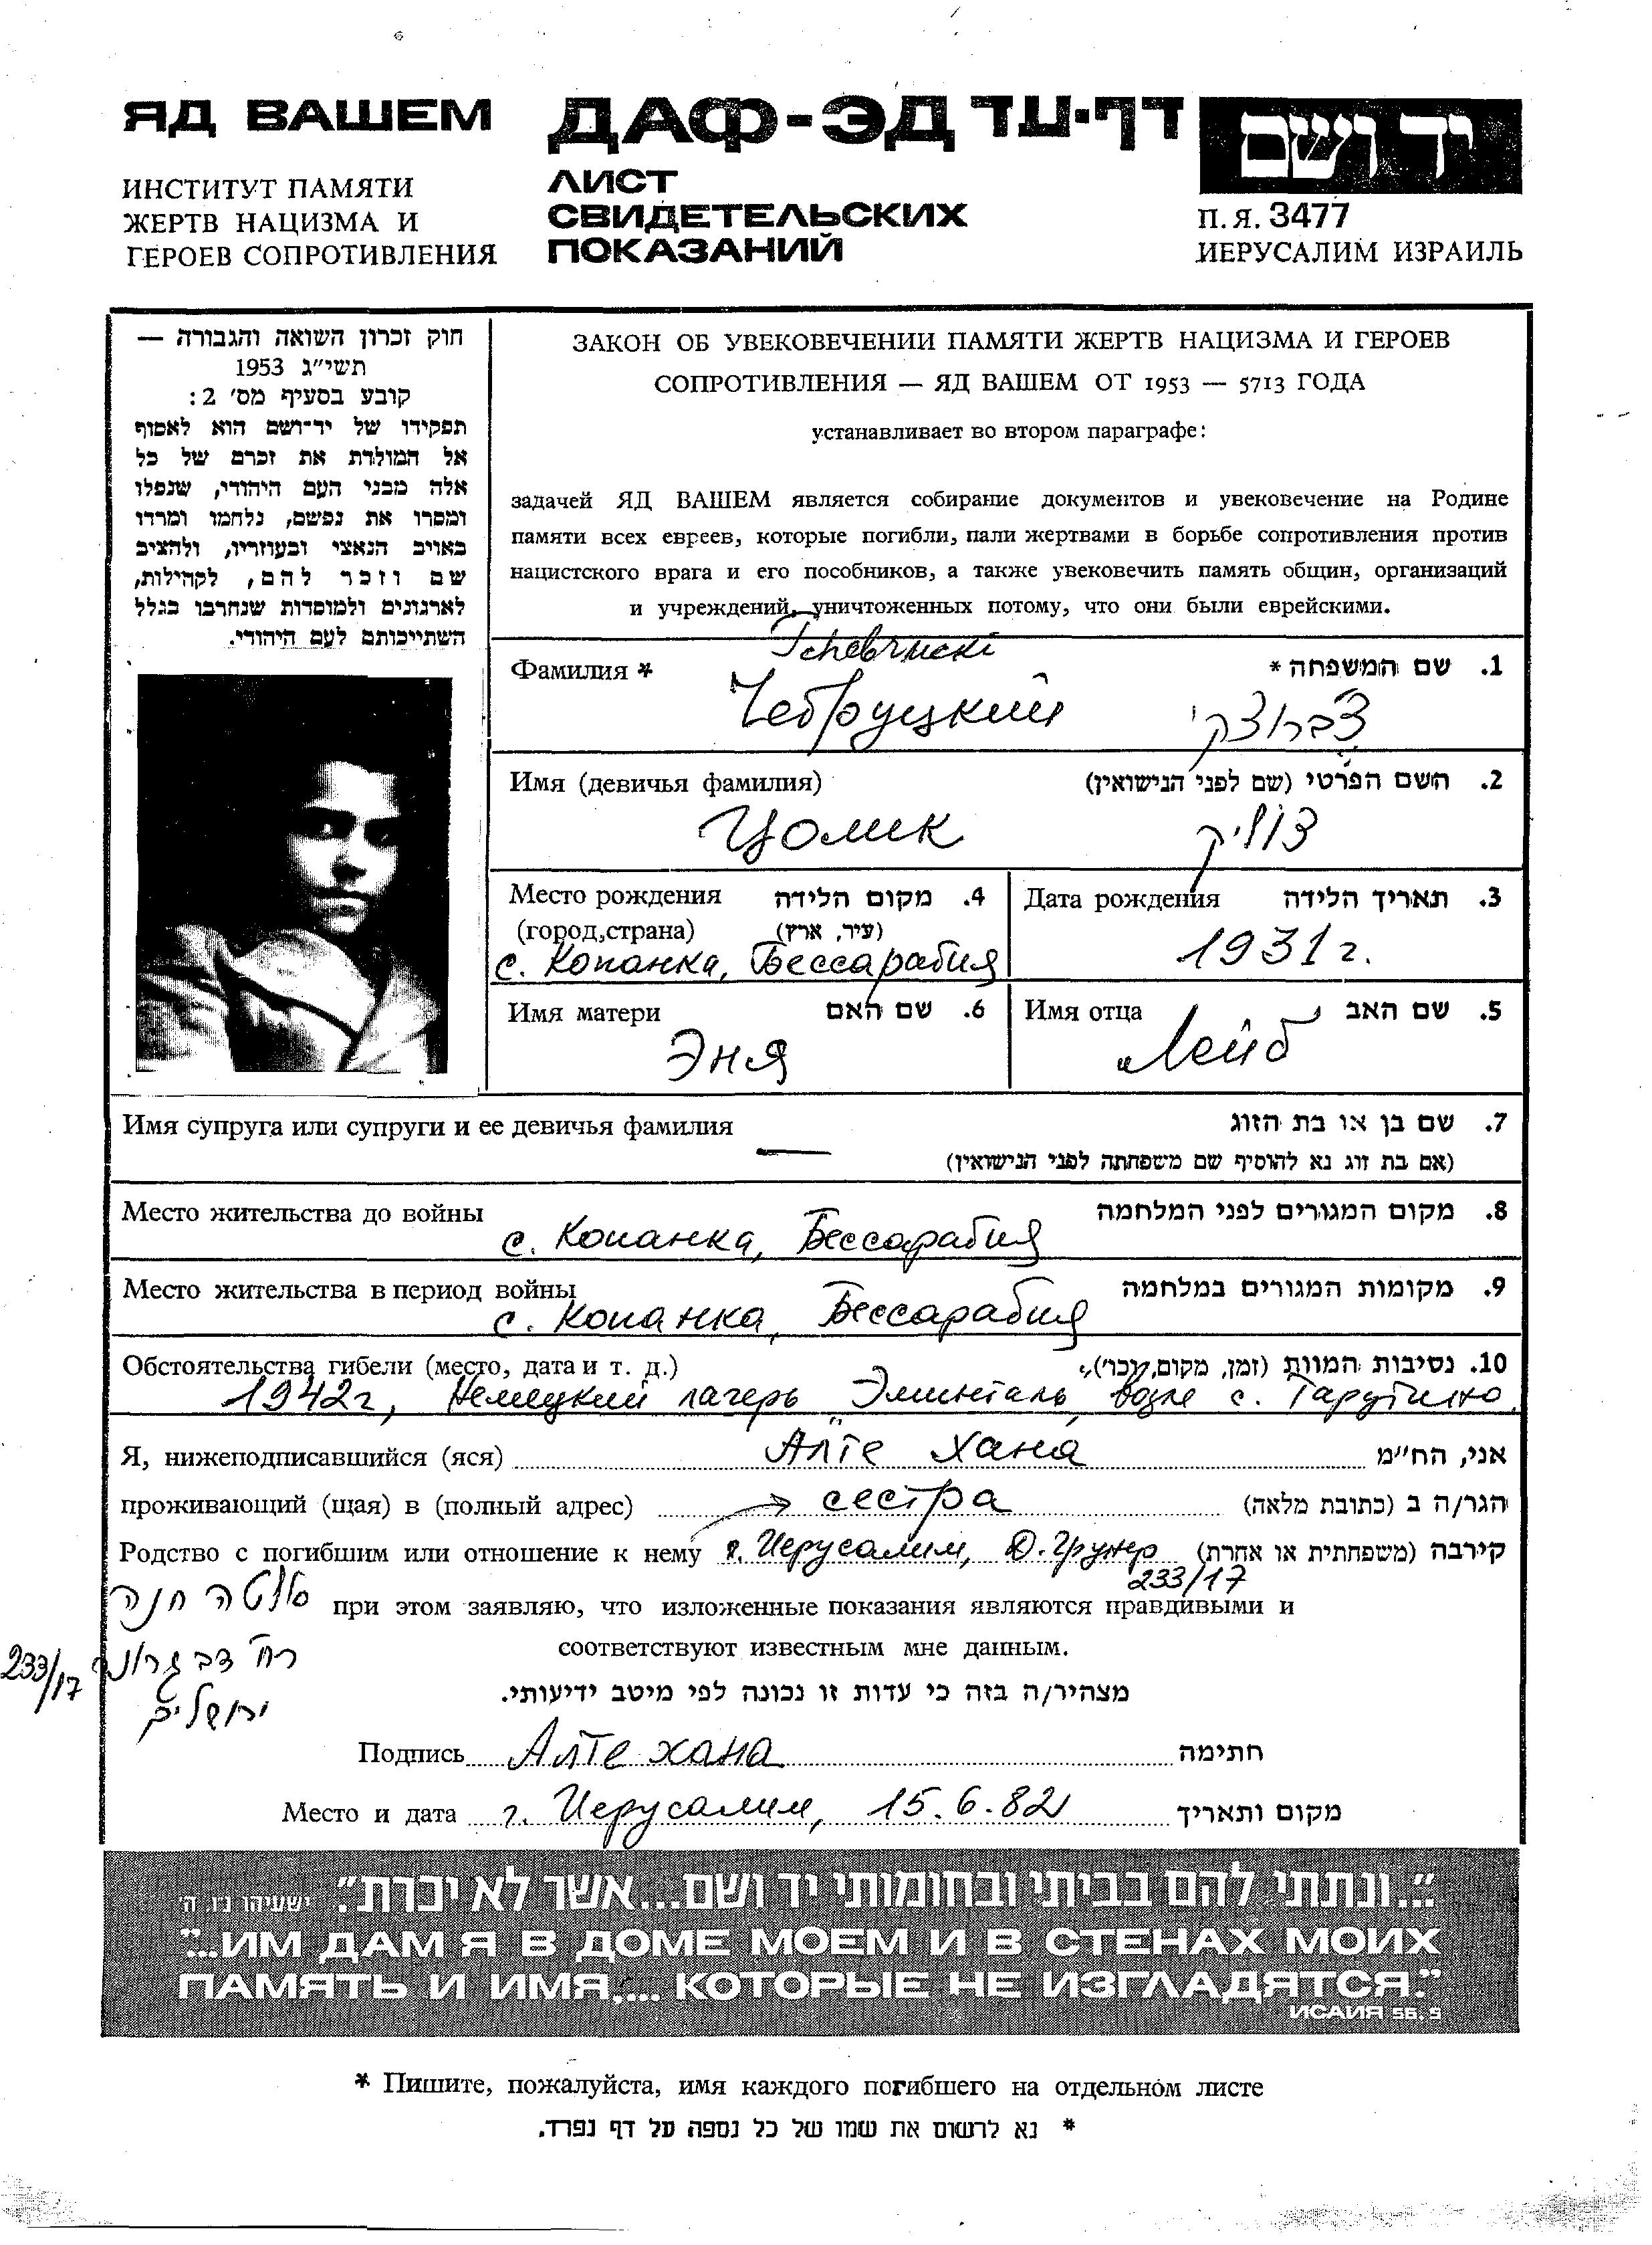 ЯД ВАШЕМ
ИНСТИТУТ ПАМЯТИ
ЖЕРТВ НАЦИЗМА И
ГЕРОЕВ СОПРОТИВЛЕНИЯ
ДАФ-ЭД דף-עד
ЛИСТ
СВИДЕТЕЛЬСКИХ
ПОКАЗАНИЙ
יד ושם
П.Я. 3477
ИЕРУСАЛИМ ИЗРАИЛЬ
חוק זכרון השואה והגבורה —
תשי״ג 1953
קובע בסעיף מס׳ 2:
תפקידו של יד־ושם הוא לאסוף
אל המולדת את זכרם של כל
אלה מבני העם היהודי, שנפלו
ומסרו את נפשם, נלחמו ומרדו
באויב הנאצי ובעוזריו, ולהציב
שם וזכר להם, לקהילות,
לארגונים ולמוסדות שנחרבו בגלל
השתייכותם לעם היהודי.
ЗАКОН ОБ УВЕКОВЕЧЕНИИ ПАМЯТИ ЖЕРТВ НАЦИЗМА И ГЕРОЕВ
СОПРОТИВЛЕНИЯ — ЯД ВАШЕМ ОТ 1953 — 5713 ГОДА
устанавливает во втором параграфе:
задачей ЯД ВАШЕМ является собирание документов и увековечение на Родине
памяти всех евреев, которые погибли, пали жертвами в борьбе сопротивления против
нацистского врага и его пособников, а также увековечить память общин, организаций
и учреждений, уничтоженных потому, что они были еврейскими.
Tchebrucki
Фамилия * שם המשפחה * .1
Чебруцкий צ׳ברוצקי
Имя (девичья фамилия) השם הפרטי (שם לפני הנישואין) .2
Цолик צוליק
Место рождения מקום הלידה .4
(город,страна) (עיר, ארץ)
с. Копанка, Бессарабия
Дата рождения תאריך הלידה .3
1931 г.
Имя матери שם האם .6
Эня
Имя отца שם האב .5
Лейб
Имя супруга или супруги и ее девичья фамилия — שם בן או בת הזוג .7
(אם בת זוג נא להוסיף שם משפחתה לפני הנישואין)
Место жительства до войны מקום המגורים לפני המלחמה .8
с. Копанка, Бессарабия
Место жительства в период войны מקומות המגורים במלחמה .9
с. Копанка, Бессарабия
Обстоятельства гибели (место, дата и т. д.) נסיבות המוות (זמן, מקום, וכו׳) .10
1942г, Немецкий лагерь Эминталь, возле с. Тарутино.
Я, нижеподписавшийся (яся) Алте Хана אני, הח״מ
проживающий (щая) в (полный адрес) сестра הגר/ה ב (כתובת מלאה)
Родство с погибшим или отношение к нему г. Иерусалим, Д. Грунер קירבה (משפחתית או אחרת)
233/17
אלטה חנה
при этом заявляю, что изложенные показания являются правдивыми и
соответствуют известным мне данным.
רח׳ דב גרונר 233/17
ירושלים
מצהיר/ה בזה כי עדות זו נכונה לפי מיטב ידיעותי.
Подпись Алте хана חתימה
Место и дата г. Иерусалим, 15.6.82 מקום ותאריך
״...ונתתי להם בביתי ובחומותי יד ושם...אשר לא יכרת״. ישעיהו נ״ו, ה׳
"...ИМ ДАМ Я В ДОМЕ МОЕМ И В СТЕНАХ МОИХ
ПАМЯТЬ И ИМЯ,... КОТОРЫЕ НЕ ИЗГЛАДЯТСЯ."
ИСАИЯ 56.5
* Пишите, пожалуйста, имя каждого погибшего на отдельном листе
* נא לרשום את שמו של כל נספה על דף נפרד.